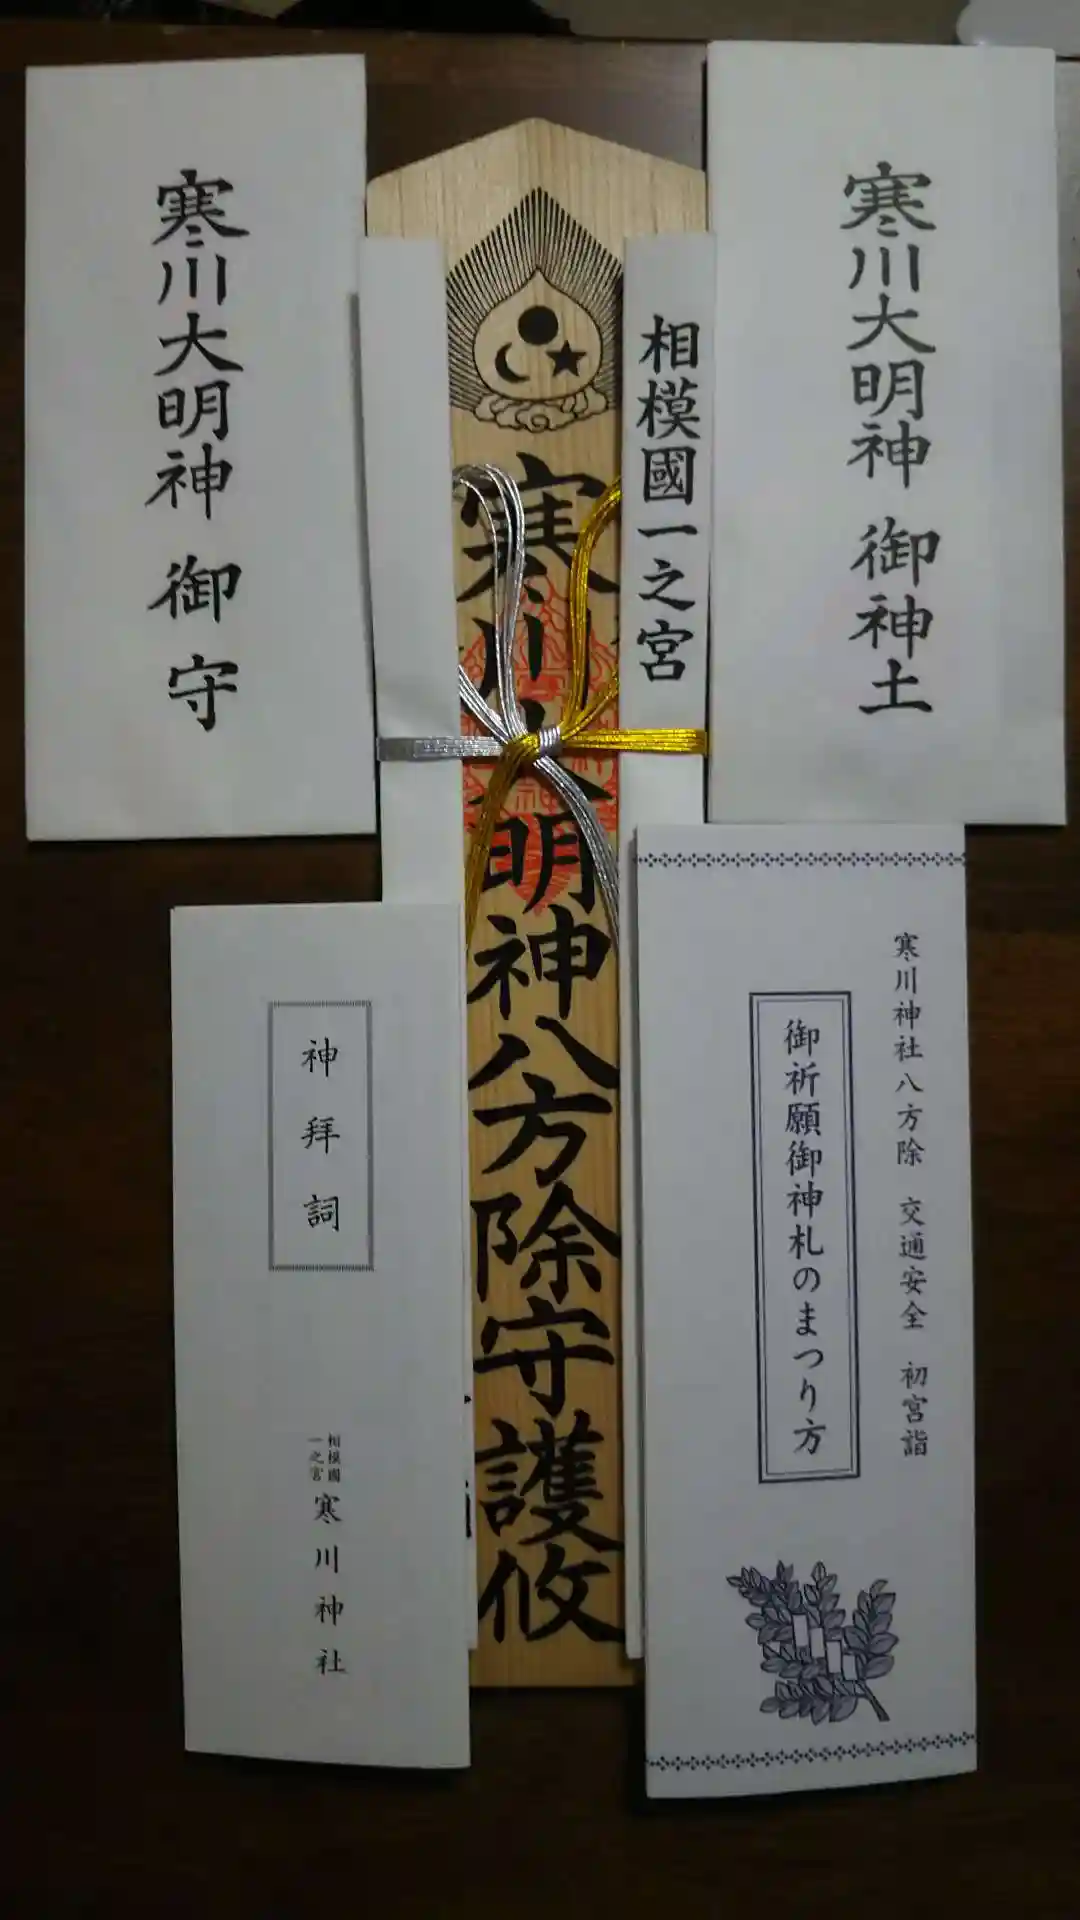 寒川大明神 御神土
相模國一之宮
寒川大明神八方除守護攸
寒川大明神 御守
寒川神社八方除 交通安全 初宮詣
御祈願御神札のまつり方
神拜詞
相模國
一之宮
寒川神社